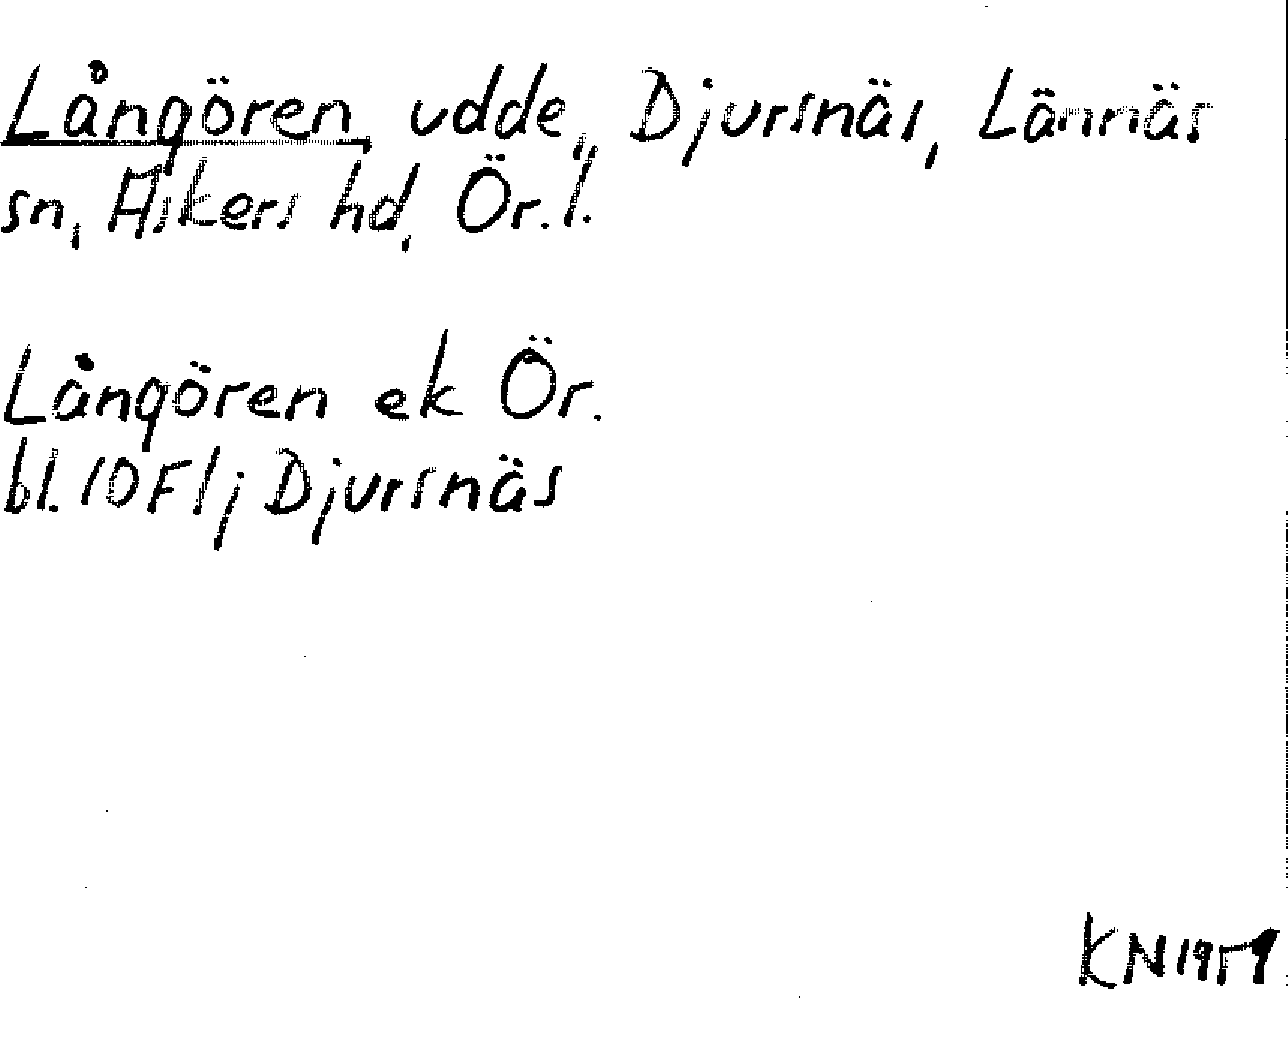 Långören, udde, Djursnäs, Lännäs
sn, Askers hd, Ör. l.
Långören ek Ör.
bl. 10F1j Djursnäs
KN1959